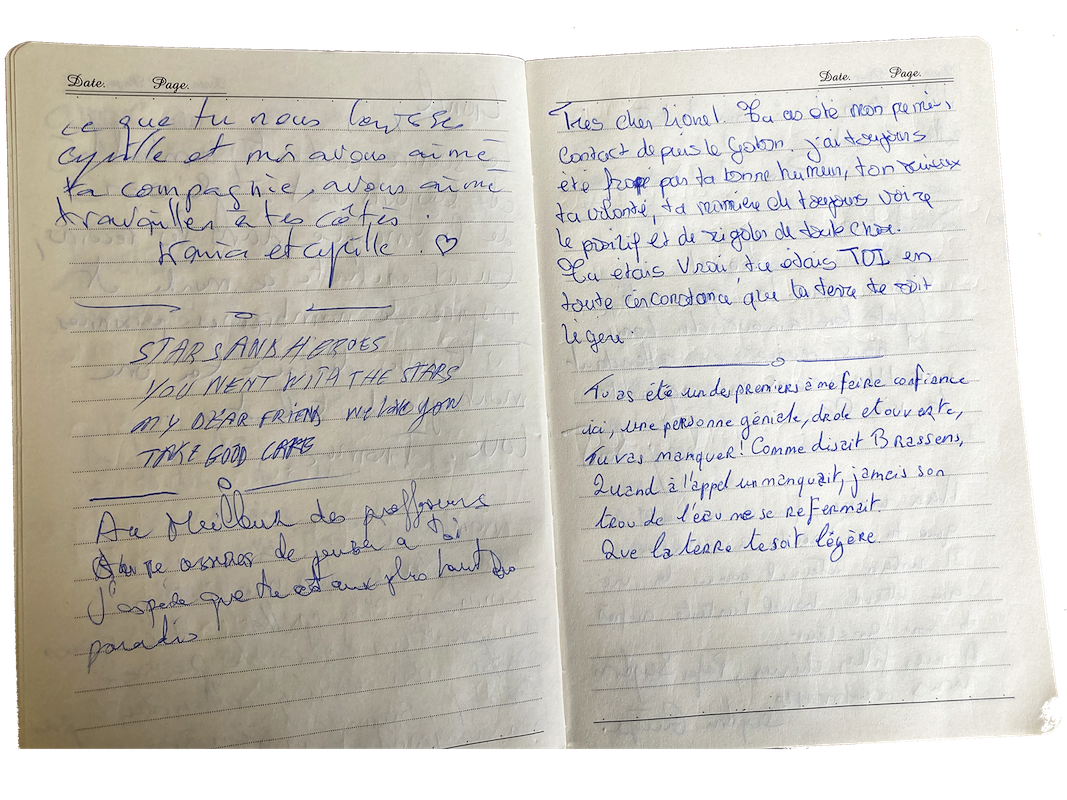 Date. Page.
ce que tu nous laisses
cyrille et moi avons aimé
ta compagnie, avons aimé
travailler à tes côtés.
et cyrille. ♡
STARS AND HEROES
YOU WENT WITH THE STARS
MY DEAR FRIEND We love you
TAKE GOOD CARE
Au Meilleur des professeurs
de penser a toi
J'espère que tu est aux plus haut du
paradis
Date. Page.
Très cher Lionel. Tu as été mon premier
Contact depuis le Gabon. j'ai toujours
été par ta bonne humeur, ton sérieux
ta volonté, ta manière de toujours voir
le positif et de rigoler de toute chose.
Tu etais Vrai, tu étais TOI en
toute circonstance que la terre te soit
légere.
Tu as été un des premiers à me faire confiance
ici, une personne géniale, drole et ouverte,
Tu vas manquer! Comme disait Brassens,
Quand à l'appel un manquait, jamais son
trou de l'eau ne se refermait
Que la terre te soit légère